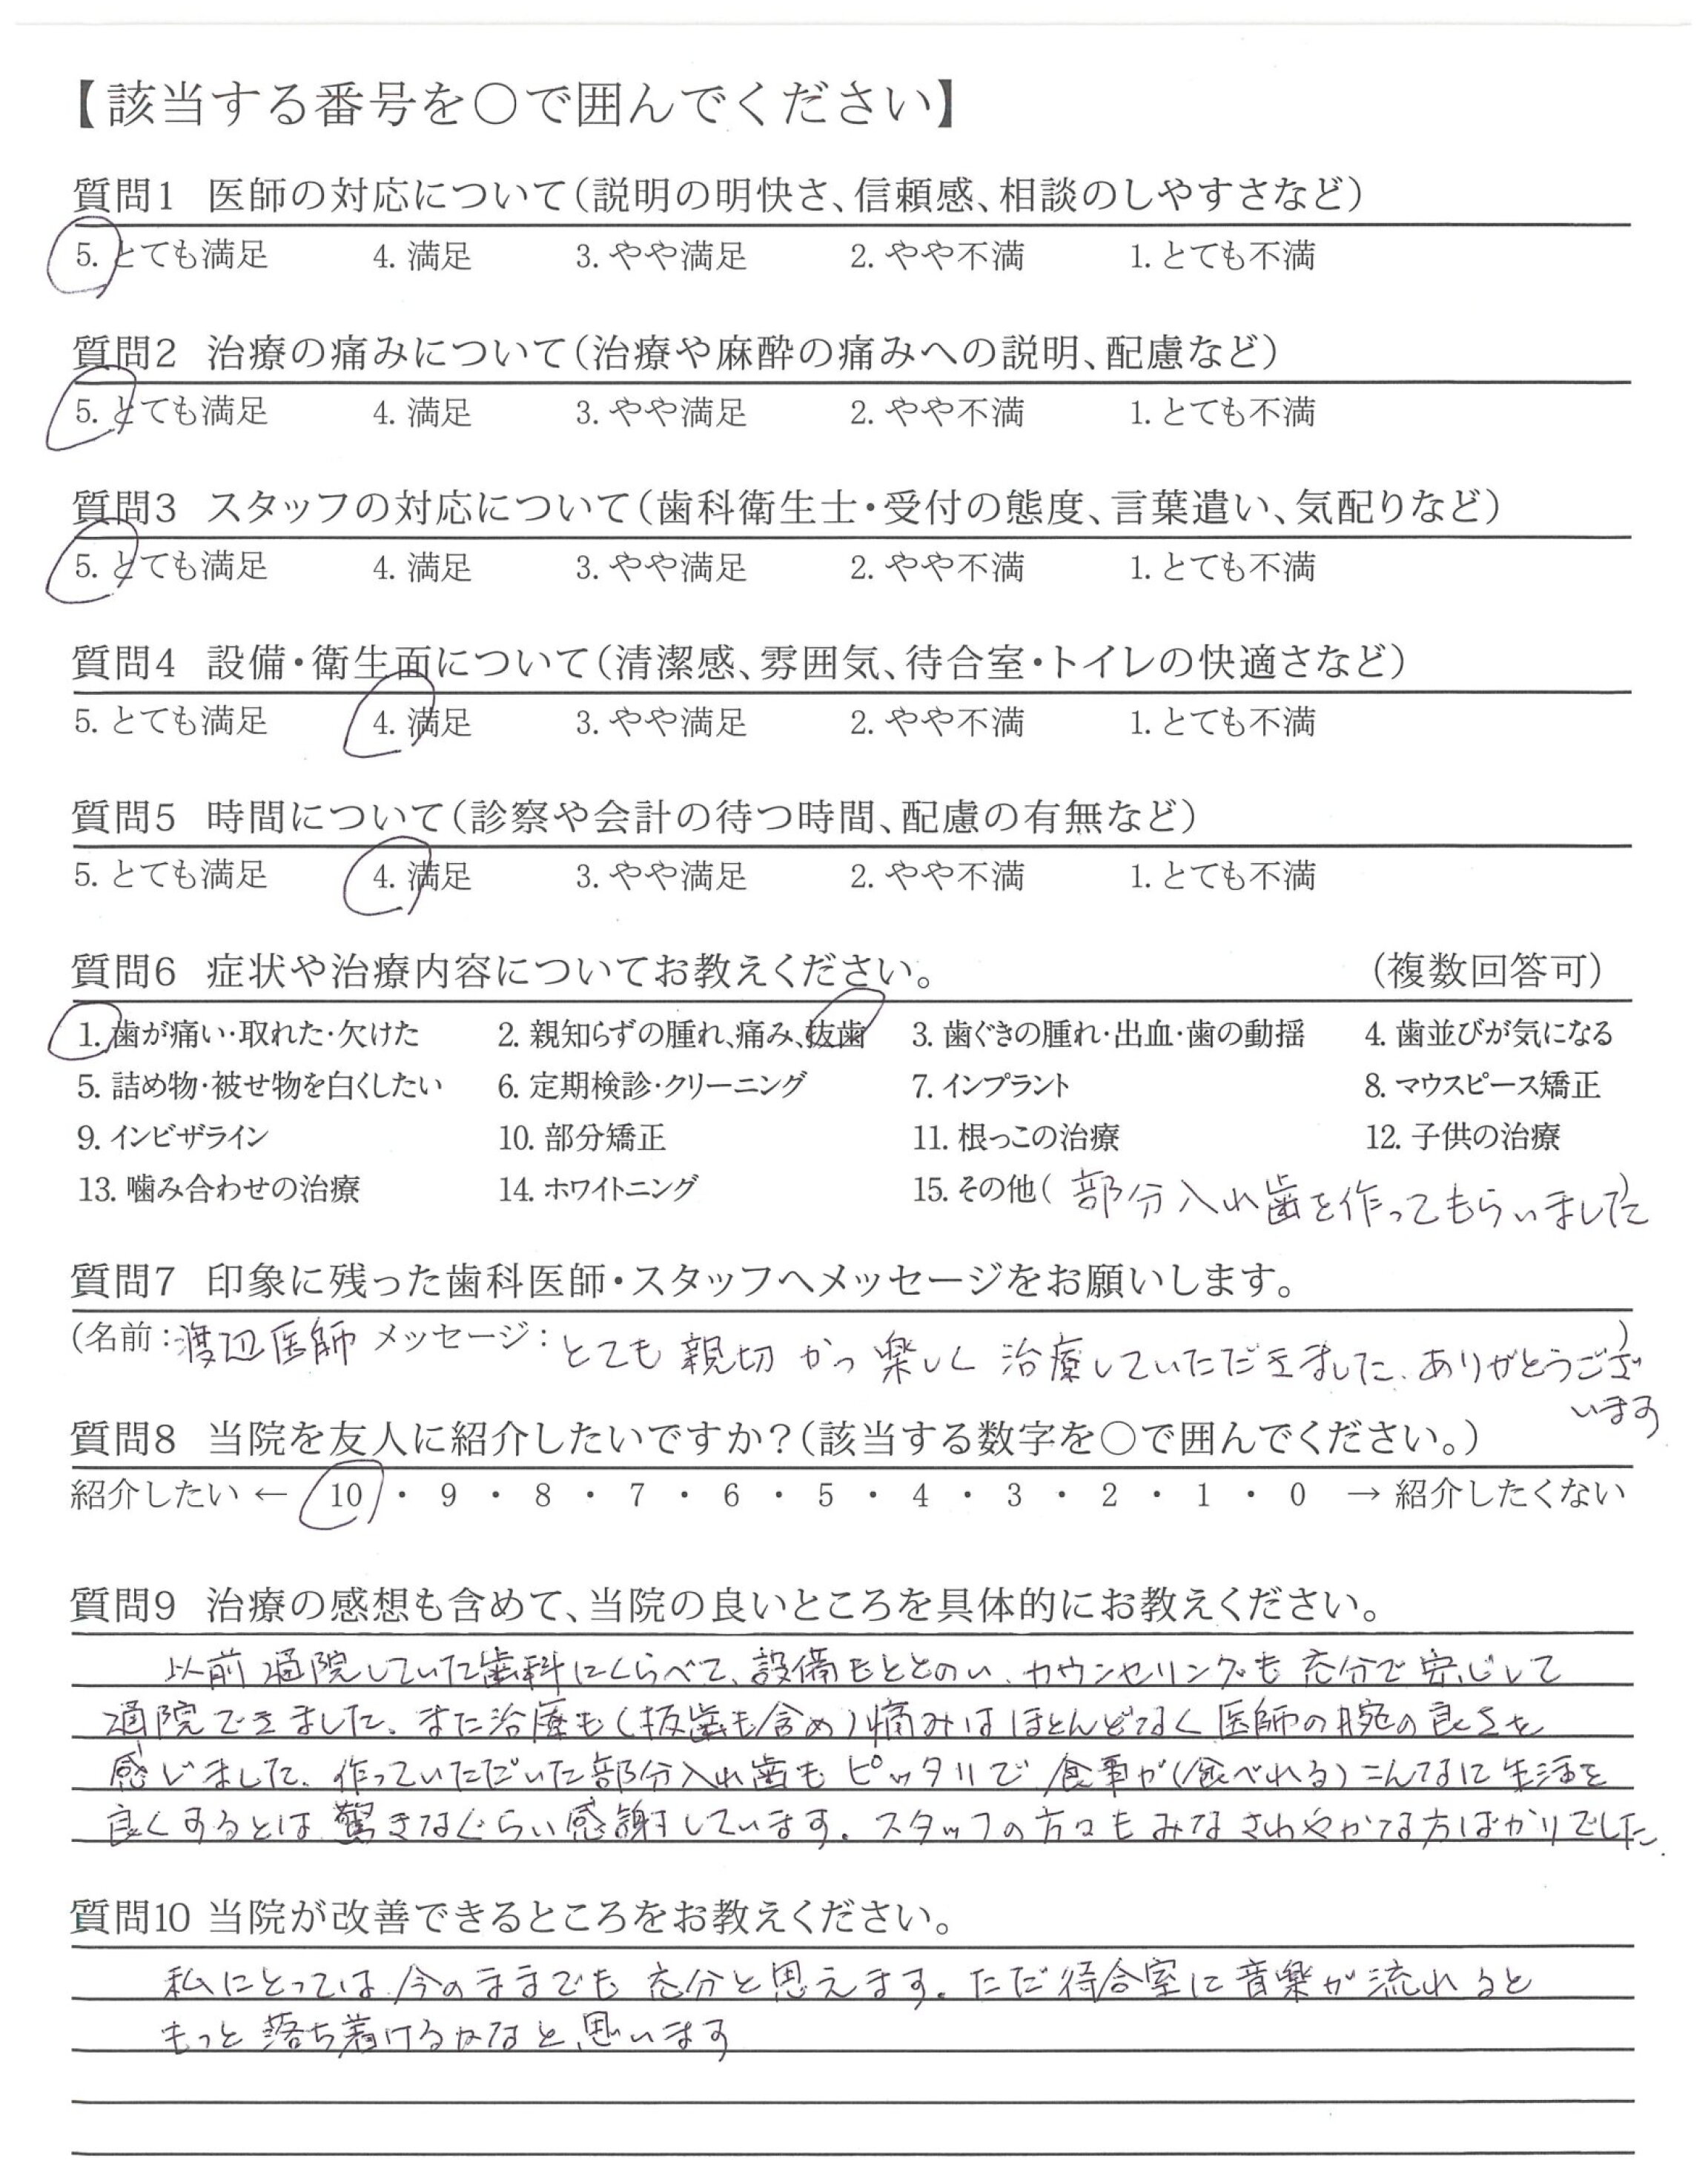 【該当する番号を○で囲んでください】
質問1 医師の対応について(説明の明快さ、信頼感、相談のしやすさなど)
5. とても満足 4. 満足 3. やや満足 2. やや不満 1. とても不満
質問2 治療の痛みについて(治療や麻酔の痛みへの説明、配慮など)
5. とても満足 4. 満足 3. やや満足 2. やや不満 1. とても不満
質問3 スタッフの対応について(歯科衛生士・受付の態度、言葉遣い、気配りなど)
5. とても満足 4. 満足 3. やや満足 2. やや不満 1. とても不満
質問4 設備・衛生面について(清潔感、雰囲気、待合室・トイレの快適さなど)
5. とても満足 4. 満足 3. やや満足 2. やや不満 1. とても不満
質問5 時間について(診察や会計の待つ時間、配慮の有無など)
5. とても満足 4. 満足 3. やや満足 2. やや不満 1. とても不満
質問6 症状や治療内容についてお教えください。 (複数回答可)
1. 歯が痛い・取れた・欠けた 2. 親知らずの腫れ、痛み、抜歯 3. 歯ぐきの腫れ・出血・歯の動揺 4. 歯並びが気になる
5. 詰め物・被せ物を白くしたい 6. 定期検診・クリーニング 7. インプラント 8. マウスピース矯正
9. インビザライン 10. 部分矯正 11. 根っこの治療 12. 子供の治療
13. 噛み合わせの治療 14. ホワイトニング 15. その他( 部分入れ歯を作ってもらいました)
質問7 印象に残った歯科医師・スタッフへメッセージをお願いします。
(名前:渡辺医師 メッセージ:とても親切かつ楽しく治療していただきました。ありがとうござ)
います
質問8 当院を友人に紹介したいですか?(該当する数字を○で囲んでください。)
紹介したい ← 10 ・ 9 ・ 8 ・ 7 ・ 6 ・ 5 ・ 4 ・ 3 ・ 2 ・ 1 ・ 0 → 紹介したくない
質問9 治療の感想も含めて、当院の良いところを具体的にお教えください。
以前通院していた歯科にくらべて、設備もととのい、カウンセリングも充分で安心して
通院できました。また治療も(抜歯も含め)痛みはほとんどなく医師の腕の良さを
感じました。作っていただいた部分入れ歯もピッタリで食事が(食べれる)こんなに生活を
良くするとは驚きなぐらい感謝しています。スタッフの方々もみなさわやかな方ばかりでした。
質問10 当院が改善できるところをお教えください。
私にとっては今のままでも充分と思えます。ただ待合室に音楽が流れると
もっと落ち着けるかなと思います